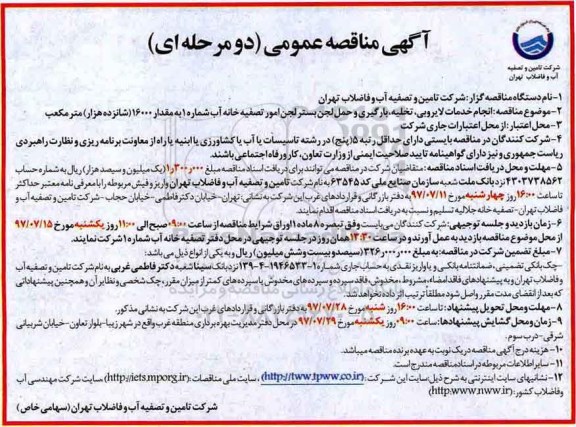 آگهی مناقصه عمومی (دو مرحله ای)
شرکت تامین و تصفیه
آب و فاضلاب تهران
۱-نام دستگاه مناقصه گزار: شرکت تامین و تصفیه آب و فاضلاب تهران
۲-موضوع مناقصه: انجام خدمات لایروبی، تخلیه، بارگیری و حمل لجن بستر لجن امور تصفیه خانه آب شماره ۱ به مقدار ۱۶۰۰۰ (شانزده هزار) متر مکعب
۳-محل اعتبار: از محل اعتبارات جاری شرکت
۴-شرکت کنندگان در مناقصه بایستی دارای حداقل رتبه ۵ (پنج) در رشته تاسیسات یا آب یا کشاورزی یا ابنیه یا راه از معاونت برنامه ریزی و نظارت راهبردی
ریاست جمهوری و نیز دارای گواهینامه تایید صلاحیت ایمنی از وزارت تعاون، کار و رفاه اجتماعی باشند.
۵-مهلت و دریافت اسناد مناقصه: متقاضیان شرکت در مناقصه می توانند برای دریافت اسناد مناقصه مبلغ ۱٫۰۳۰٫۰۰۰ (یک میلیون و سیصد هزار) ریال به شماره حساب
۴۳۰۳۷۳۸۵۶۲ نزد بانک ملت شعبه سازمان صنایع ملی کد ۶۳۵۴۵ به نام شرکت تامین و تصفیه آب و فاضلاب تهران واریز و فیش مربوطه را با معرفی نامه معتبر حداکثر
تا ساعت ۱۶:۰۰ روز چهارشنبه مورخ ۹۷/۰۷/۱۱ به دفتر بازرگانی و قراردادهای غرب این شرکت به نشانی: تهران- خیابان دکتر فاطمی- خیابان حجاب- شرکت تامین و تصفیه آب و
فاضلاب تهران- تصفیه خانه جلالیه تسلیم و نسبت به دریافت اسناد مناقصه اقدام نمایند.
۶-زمان بازدید و جلسه توجیهی: شرکت کنندگان می بایست وفق تبصره ۸ ماده ۱ اوراق شرایط مناقصه از ساعت ۰۹:۰۰ صبح الی ۱۱:۰۰ روز یکشنبه مورخ ۹۷/۰۷/۱۵
از محل موضوع مناقصه بازدید به عمل آورند و در ساعت ۱۳:۳۰ همان روز در جلسه توجیهی در محل دفتر تصفیه خانه آب شماره ۱ شرکت نمایند.
۷-مبلغ تضمین شرکت در مناقصه: به مبلغ ۳۲۶٫۰۰۰٫۰۰۰ (سیصد و بیست و شش میلیون) ریال و به یکی از انواع ذیل می باشد:
-چک بانکی تضمینی، ضمانتنامه بانکی و یا واریز نقدی به حساب جاری شماره ۱-۱۹۴۶۵۳۳-۴-۱۳۹ نزد بانک سینا شعبه دکتر فاطمی غربی به نام شرکت تامین و تصفیه آب
و فاضلاب تهران و به پیشنهادهای فاقد امضاء، مشروط، مخدوش، فاقد سپرده و سپرده های مخدوش یا سپرده های کمتر از میزان مقرر، چک شخصی و نظایر آن و همچنین پیشنهاداتی
که بعد از انقضای مدت مقرر واصل شود مطلقا ترتیب اثر داده نخواهد شد.
۸-مهلت و محل تحویل پیشنهاد: تا ساعت ۱۶:۰۰ روز شنبه مورخ ۹۷/۰۷/۲۸ به دفتر بازرگانی و قراردادهای غرب این شرکت به نشانی مذکور.
۹-زمان و محل گشایش پیشنهادها: ساعت ۰۹:۰۰ روز یکشنبه مورخ ۹۷/۰۷/۲۹ در محل دفتر مدیریت بهره برداری منطقه غرب واقع در شهر زیبا- بلوار تعاون- خیابان شربیانی
شرقی- درب سوم.
۱۰- هزینه درج آگهی مناقصه در یک نوبت به عهده برنده مناقصه میباشد.
۱۱- سایر اطلاعات مربوطه در اسناد مناقصه مندرج است.
۱۲- نشانیهای سایت اینترنتی به شرح ذیل: سایت این شرکت: (http://tww.tpww.co.ir) سایت ملی مناقصات: (http://iets.mporg.ir) سایت شرکت مهندسی آب
و فاضلاب کشور: (http:www.nww.ir)
شرکت تامین و تصفیه آب و فاضلاب تهران (سهامی خاص)